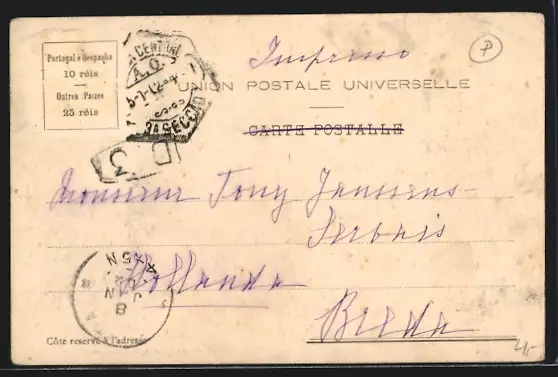 Portugal e Hespanha
10 réis
Outros Paizes
25 réis
CENTRAL
3A SECCÃO
Impresso
P
UNION POSTALE UNIVERSELLE
CARTE POSTALLE
3
Monsieur Tony Janssens-
Hollanda
Breda
8
JAN
4-5N
Côté reservé à l'adresse